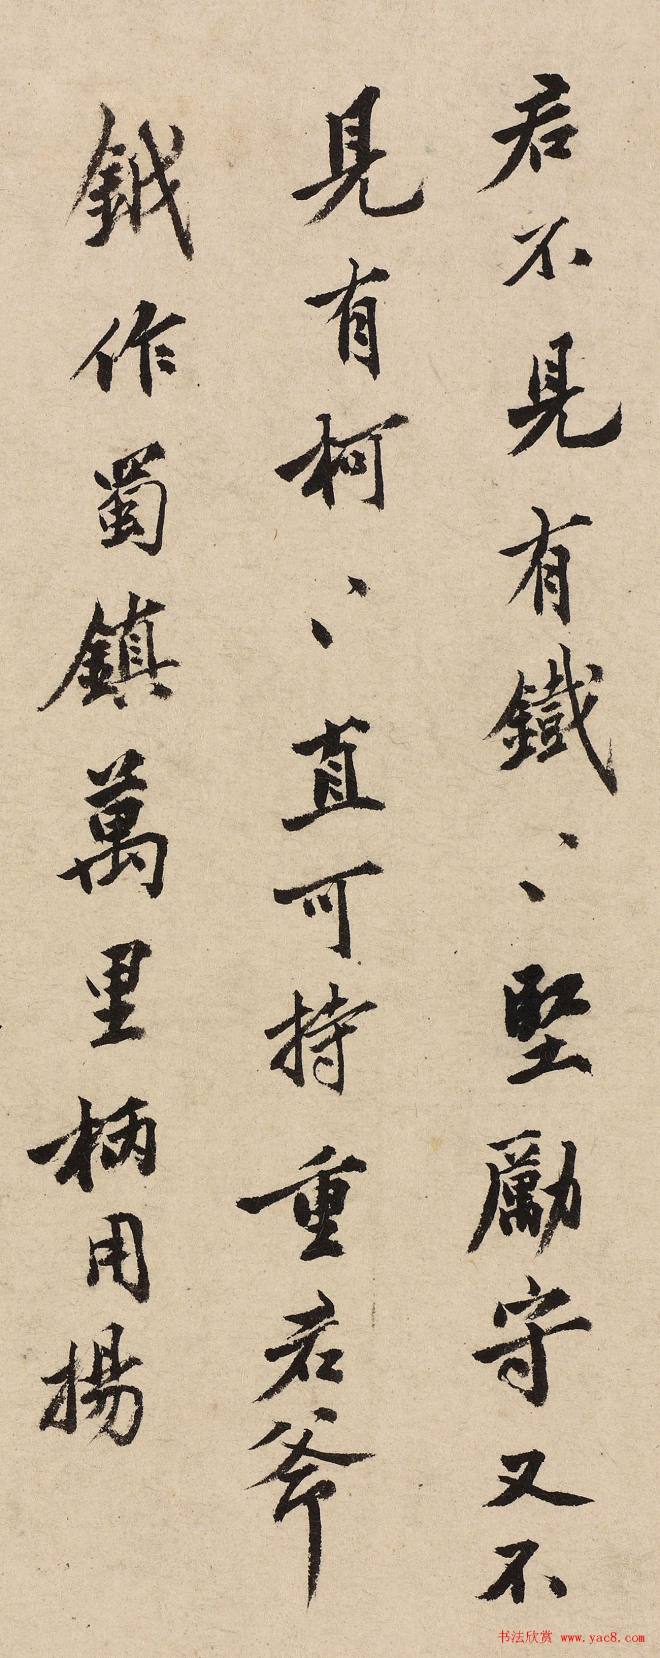 君不見有鐵〻堅勵守又不
見有柯〻直可持重君斧
鉞作蜀鎮萬里柄用揚
书法欣赏 www.yac8.com